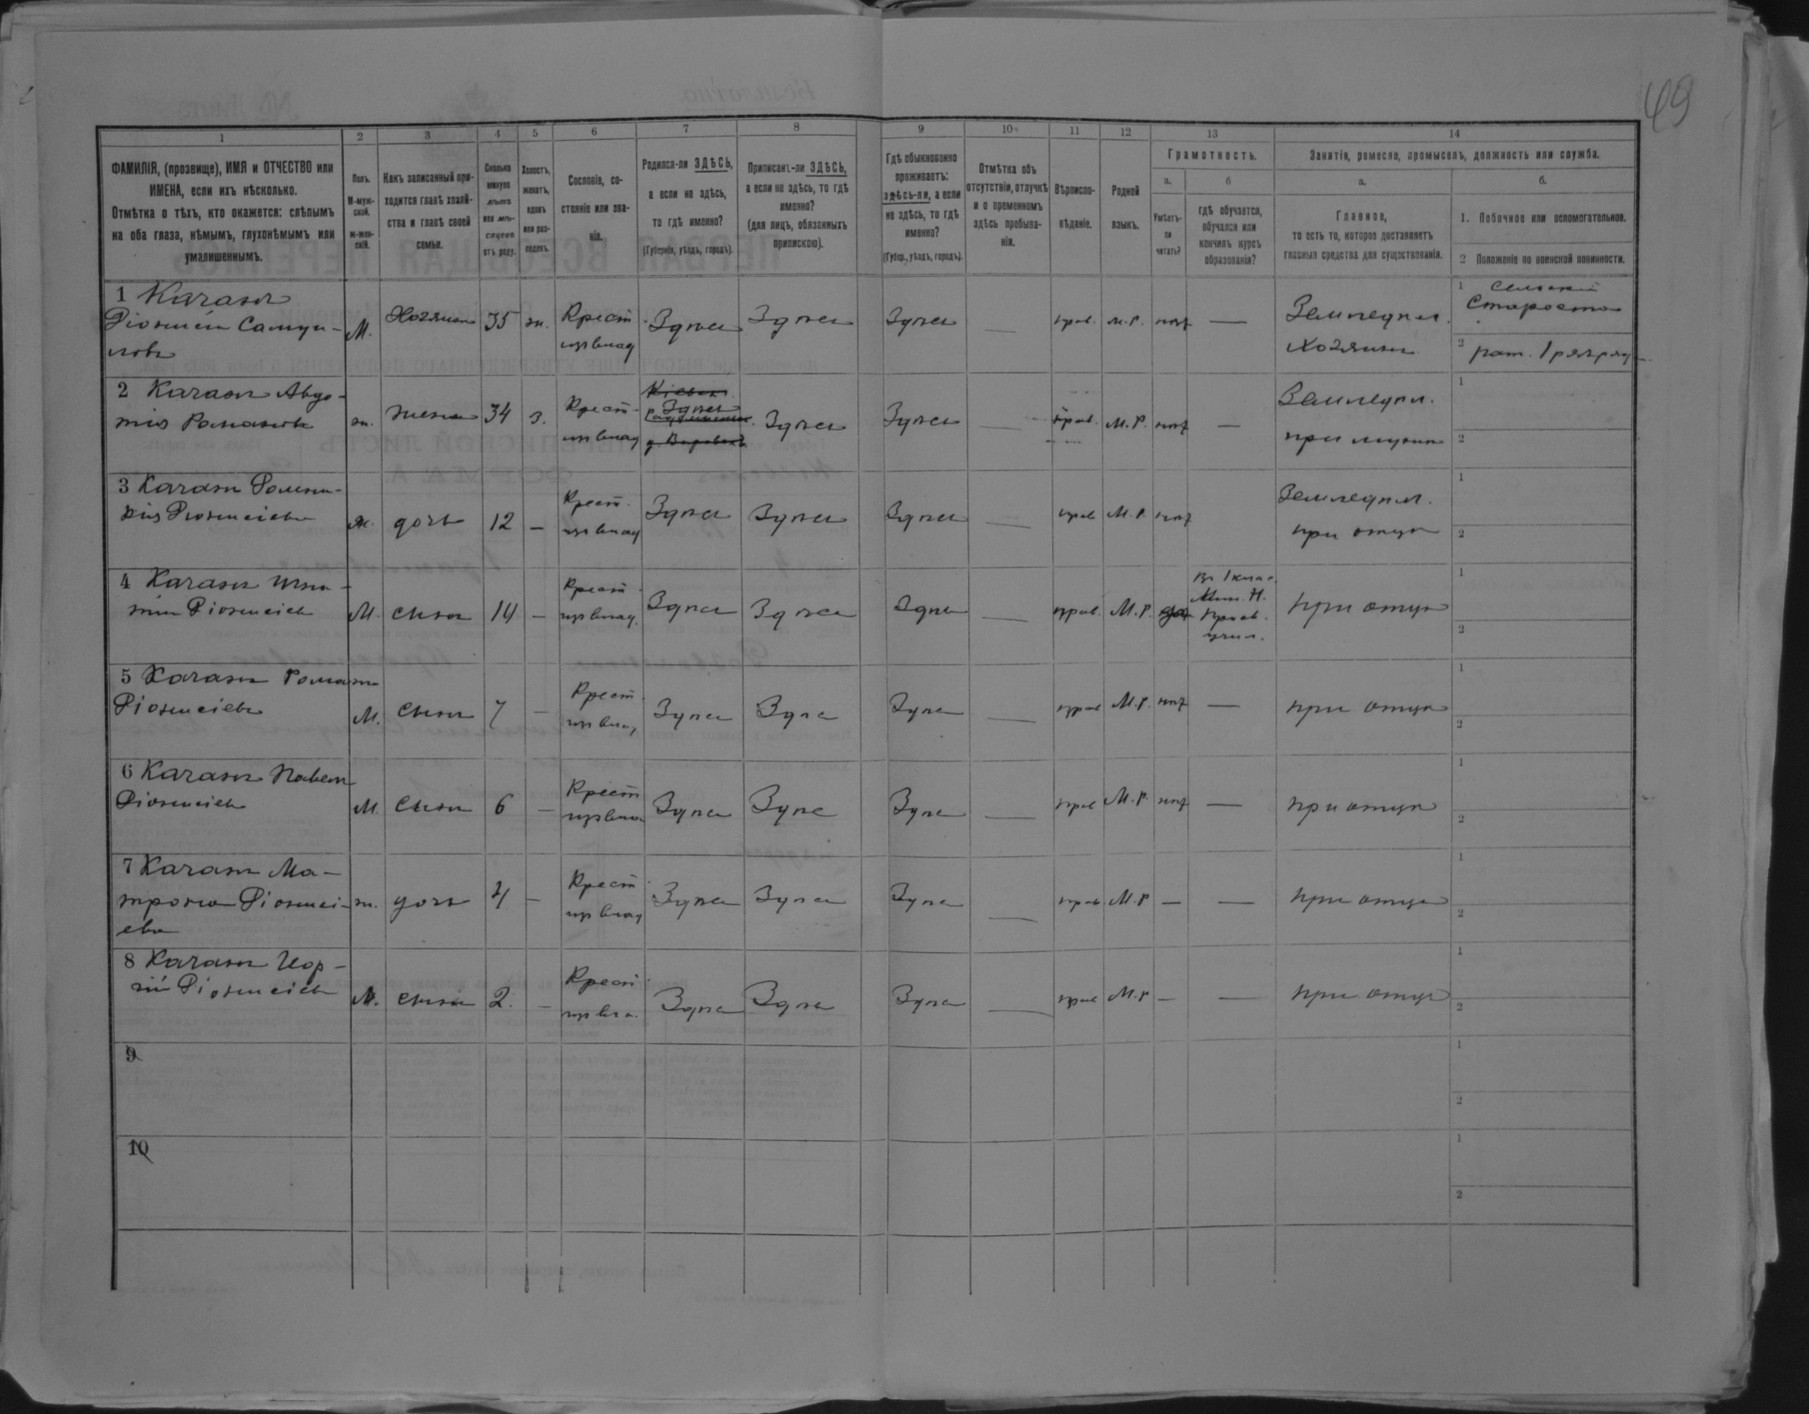 49
1 2 3 4 5 6 7 8 9 10 11 12 13 14
ФАМИЛІЯ, (прозвище), ИМЯ и ОТЧЕСТВО или
ИМЕНА, если ихъ нѣсколько.
Отмѣтка о тѣхъ, кто окажется: слѣпымъ
на оба глаза, нѣмымъ, глухонѣмымъ или
умалишеннымъ.
Полъ.
М-муж-
ской.
ж-жен-
скій.
Какъ записанный при-
ходится главѣ хозяй-
ства и главѣ своей
семьи.
Сколько
минуло
лѣтъ
или мѣ-
сяцевъ
отъ роду.
Холостъ,
женатъ,
вдовъ
или раз-
веденъ.
Сословіе, со-
стояніе или зва-
ніе.
Родился-ли ЗДѢСЬ,
а если не здѣсь,
то гдѣ именно?
(Губернія, уѣздъ, городъ).
Приписанъ-ли ЗДѢСЬ,
а если не здѣсь, то гдѣ
именно?
(для лицъ, обязанныхъ
припискою).
Гдѣ обыкновенно
проживаетъ:
здѣсь-ли, а если
не здѣсь, то гдѣ
именно?
(Губер., уѣздъ, городъ).
Отмѣтка объ
отсутствіи, отлучкѣ
и о временномъ
здѣсь пребыва-
ніи.
Вѣроиспо-
вѣданіе.
Родной
языкъ.
Грамотность.
а.
Умѣетъ-
ли
читать?
б
гдѣ обучается,
обучался или
кончилъ курсъ
образованія?
Занятіе, ремесло, промыселъ, должность или служба.
а.
Главное,
то есть то, которое доставляетъ
главныя средства для существованія.
б.
1. Побочное или вспомогательное.
2 Положеніе по воинской повинности.
1 Качанъ
Діонисій Самуи-
ловъ
М. Хозяинъ 35 ж. Крест
изъ влад Здѣсь Здѣсь Здѣсь — прав. М.Р. нѣт — Земледѣл.
Хозяинъ
1 Сельский
Староста
2 рат. 1 разряд
2 Качанъ Авдо-
тія Романова
ж. жена 34 з. Крест
изъ влад
Кіевск.
Здѣсь
Здѣсь Здѣсь — прав. М.Р. нѣт — Земледѣл.
при мужѣ
1
2
3 Качан
Діонисіева
ж. дочь 12 — Крест.
изъ влад Здѣсь Здѣсь Здѣсь — прав М.Р. нѣт Земледѣл.
при отцѣ
1
2
4 Качанъ Игна-
тій Діонисіев
М. сынъ 14 — Крест
изъ влад. Здѣсь Здѣсь Здѣсь — прав. М.Р. да
Въ 1 клас.
Мин. Н.
Просв.
учил.
при отцѣ
1
2
5 Качанъ Романъ
Діонисіевъ
М. сынъ 7 — Крест
изъ влад Здѣсь Здѣсь Здѣсь — прав М.Р. нѣт — при отцѣ
1
2
6 Качанъ Павелъ
Діонисіевъ
М. сынъ 6 — Крест
изъ влад Здѣсь Здѣсь Здѣсь — прав М.Р. нѣт — при отцѣ
1
2
7 Качанъ Ма-
трона Діонисі-
ева
ж. дочь 4 — Крест
изъ влад Здѣсь Здѣсь Здѣсь — прав. М.Р — — при отцѣ
1
2
8 Качанъ Геор-
гій Діонисіевъ
М. сынъ 2. — Крест
изъ вла. Здѣсь Здѣсь Здѣсь — прав М.Р — — при отцѣ
1
2
9
1
2
10
1
2